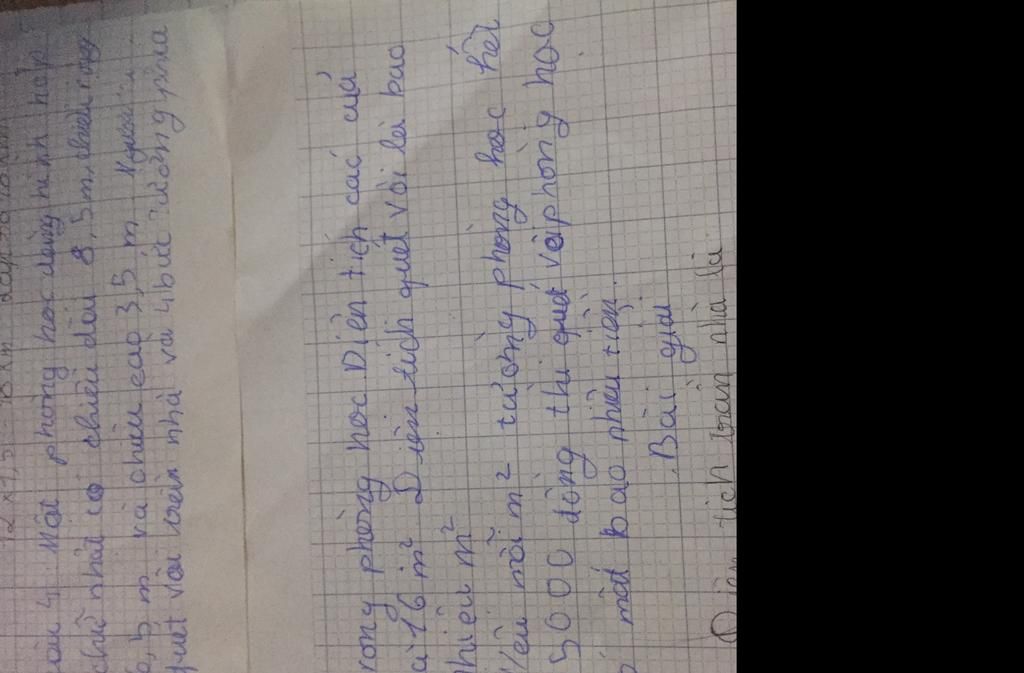 4. Một phòng học dạng hình hộp
chữ nhật có chiều dài 8,5m, chiều rộng
6,5 m và chiều cao 3,5 m Người
quét vôi trần nhà và 4 bức tường phía
rong phòng học Diện tích các cửa
à 16 m² Diện tích quét vôi là bao
hiêu m²
Nếu mỗi m² tường phòng học hết
5000 đồng thì quét vôi phòng học
mất bao nhiêu tiền.
Bài giải
Diện tích trần nhà là